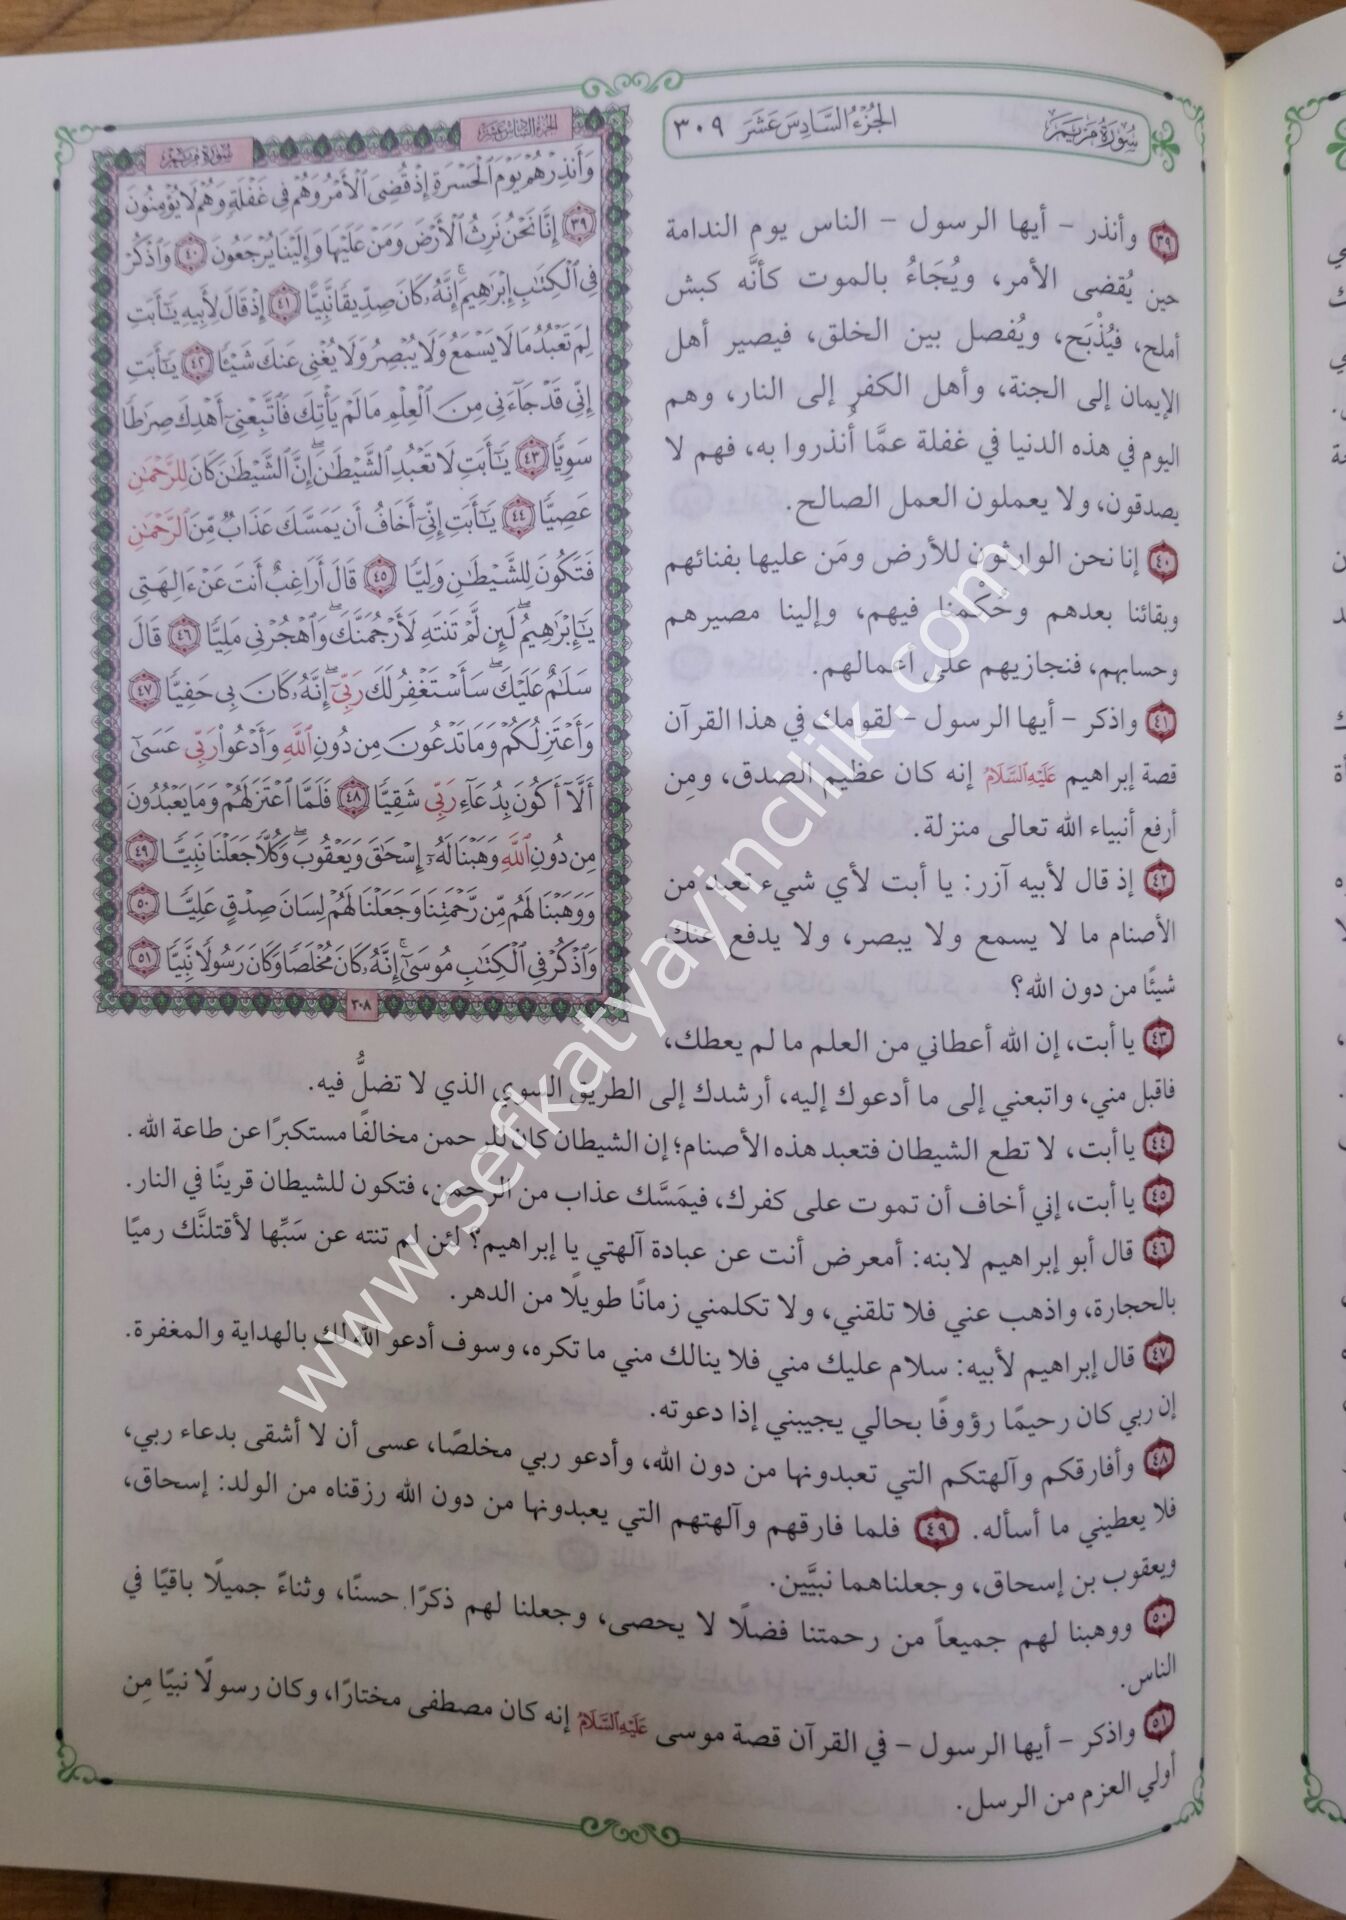 سُورَةُ مَرْيَم
الجُزْءُ السَّادِسَ عَشَرَ ٣٠٩
الجُزْءُ السَّادِسَ عَشَرَ
سُورَةُ مَرْيَم
وَأَنذِرْهُمْ يَوْمَ ٱلْحَسْرَةِ إِذْ قُضِىَ ٱلْأَمْرُ وَهُمْ فِى غَفْلَةٍ وَهُمْ لَا يُؤْمِنُونَ
٣٩ إِنَّا نَحْنُ نَرِثُ ٱلْأَرْضَ وَمَنْ عَلَيْهَا وَإِلَيْنَا يُرْجَعُونَ ٤٠ وَٱذْكُرْ
فِى ٱلْكِتَٰبِ إِبْرَٰهِيمَ ۚ إِنَّهُۥ كَانَ صِدِّيقًا نَّبِيًّا ٤١ إِذْ قَالَ لِأَبِيهِ يَٰٓأَبَتِ
لِمَ تَعْبُدُ مَا لَا يَسْمَعُ وَلَا يُبْصِرُ وَلَا يُغْنِى عَنكَ شَيْـًٔا ٤٢ يَٰٓأَبَتِ
إِنِّى قَدْ جَآءَنِى مِنَ ٱلْعِلْمِ مَا لَمْ يَأْتِكَ فَٱتَّبِعْنِىٓ أَهْدِكَ صِرَٰطًا
سَوِيًّا ٤٣ يَٰٓأَبَتِ لَا تَعْبُدِ ٱلشَّيْطَٰنَ ۖ إِنَّ ٱلشَّيْطَٰنَ كَانَ لِلرَّحْمَٰنِ
عَصِيًّا ٤٤ يَٰٓأَبَتِ إِنِّىٓ أَخَافُ أَن يَمَسَّكَ عَذَابٌ مِّنَ ٱلرَّحْمَٰنِ
فَتَكُونَ لِلشَّيْطَٰنِ وَلِيًّا ٤٥ قَالَ أَرَاغِبٌ أَنتَ عَنْ ءَالِهَتِى
يَٰٓإِبْرَٰهِيمُ ۖ لَئِن لَّمْ تَنتَهِ لَأَرْجُمَنَّكَ ۖ وَٱهْجُرْنِى مَلِيًّا ٤٦ قَالَ
سَلَٰمٌ عَلَيْكَ ۖ سَأَسْتَغْفِرُ لَكَ رَبِّىٓ ۖ إِنَّهُۥ كَانَ بِى حَفِيًّا ٤٧
وَأَعْتَزِلُكُمْ وَمَا تَدْعُونَ مِن دُونِ ٱللَّهِ وَأَدْعُوا۟ رَبِّى عَسَىٰٓ
أَلَّآ أَكُونَ بِدُعَآءِ رَبِّى شَقِيًّا ٤٨ فَلَمَّا ٱعْتَزَلَهُمْ وَمَا يَعْبُدُونَ
مِن دُونِ ٱللَّهِ وَهَبْنَا لَهُۥٓ إِسْحَٰقَ وَيَعْقُوبَ ۖ وَكُلًّا جَعَلْنَا نَبِيًّا ٤٩
وَوَهَبْنَا لَهُم مِّن رَّحْمَتِنَا وَجَعَلْنَا لَهُمْ لِسَانَ صِدْقٍ عَلِيًّا ٥٠
وَٱذْكُرْ فِى ٱلْكِتَٰبِ مُوسَىٰٓ ۚ إِنَّهُۥ كَانَ مُخْلَصًا وَكَانَ رَسُولًا نَّبِيًّا ٥١
٣٠٨
٣٩ وأنذر – أيها الرسول – الناس يوم الندامة
حين يُقضى الأمر، ويُجَاءُ بالموت كأنَّه كبش
أملح، فيُذْبَح، ويُفصل بين الخلق، فيصير أهل
الإيمان إلى الجنة، وأهل الكفر إلى النار، وهم
اليوم في هذه الدنيا في غفلة عمَّا أُنذروا به، فهم لا
يصدقون، ولا يعملون العمل الصالح.
٤٠ إنا نحن الوارثون للأرض ومَن عليها بفنائهم
وبقائنا بعدهم وحُكْمنا فيهم، وإلينا مصيرهم
وحسابهم، فنجازيهم على أعمالهم.
٤١ واذكر – أيها الرسول – لقومك في هذا القرآن
قصة إبراهيم عَلَيْهِ السَّلَامُ إنه كان عظيم الصدق، ومِن
أرفع أنبياء الله تعالى منزلة.
٤٢ إذ قال لأبيه آزر: يا أبت لأي شيء تعبد من
الأصنام ما لا يسمع ولا يبصر، ولا يدفع عنك
شيئًا من دون الله؟
٤٣ يا أبت، إن الله أعطاني من العلم ما لم يعطك،
فاقبل مني، واتبعني إلى ما أدعوك إليه، أرشدك إلى الطريق السوي الذي لا تضلُّ فيه.
٤٤ يا أبت، لا تطع الشيطان فتعبد هذه الأصنام؛ إن الشيطان كان للرحمن مخالفًا مستكبرًا عن طاعة الله.
٤٥ يا أبت، إني أخاف أن تموت على كفرك، فيمَسَّك عذاب من الرحمن، فتكون للشيطان قرينًا في النار.
٤٦ قال أبو إبراهيم لابنه: أمعرض أنت عن عبادة آلهتي يا إبراهيم؟ لئن لم تنته عن سَبِّها لأقتلنَّك رميًا
بالحجارة، واذهب عني فلا تلقني، ولا تكلمني زمانًا طويلًا من الدهر.
٤٧ قال إبراهيم لأبيه: سلام عليك مني فلا ينالك مني ما تكره، وسوف أدعو الله لك بالهداية والمغفرة.
إن ربي كان رحيمًا رؤوفًا بحالي يجيبني إذا دعوته.
٤٨ وأفارقكم وآلهتكم التي تعبدونها من دون الله، وأدعو ربي مخلصًا، عسى أن لا أشقى بدعاء ربي،
فلا يعطيني ما أسأله. ٤٩ فلما فارقهم وآلهتهم التي يعبدونها من دون الله رزقناه من الولد: إسحاق،
ويعقوب بن إسحاق، وجعلناهما نبيَّين.
٥٠ ووهبنا لهم جميعاً من رحمتنا فضلًا لا يحصى، وجعلنا لهم ذكرًا حسنًا، وثناءً جميلًا باقيًا في
الناس.
٥١ واذكر – أيها الرسول – في القرآن قصة موسى عَلَيْهِ السَّلَامُ إنه كان مصطفى مختارًا، وكان رسولًا نبيًا مِن
أولي العزم من الرسل.
www.sefkatyayincilik.com